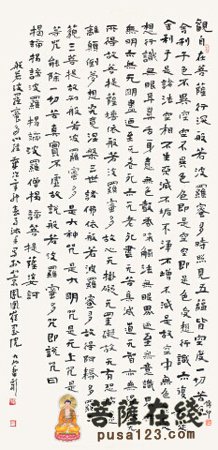 觀在菩薩行深般若波羅蜜多時照見五蘊皆空度一切苦
舍利子色不異空空不異色色即是空空即是色受想行識亦
舍利子是諸法空相不生不滅不垢不淨不增不減是故空中無
想行識無眼耳鼻舌身意無色聲香味觸法無眼界乃至無意識界
無無明亦無無明盡乃至無老死亦無老死盡無苦集滅道無智亦
所得故菩提薩埵依般若波羅蜜多故心無罣礙無罣礙故無有
顛倒夢想究竟涅槃三世諸佛依般若波羅蜜多故得阿耨多
藐三菩提故知般若波羅蜜多是大神咒是大明咒是無上咒是
等咒能除一切苦真實不虛故說般若波羅蜜多咒即說咒曰
揭諦揭諦波羅揭諦波羅僧揭諦菩提薩婆訶
般若波羅蜜多心經
菩薩在线
pusa123.com